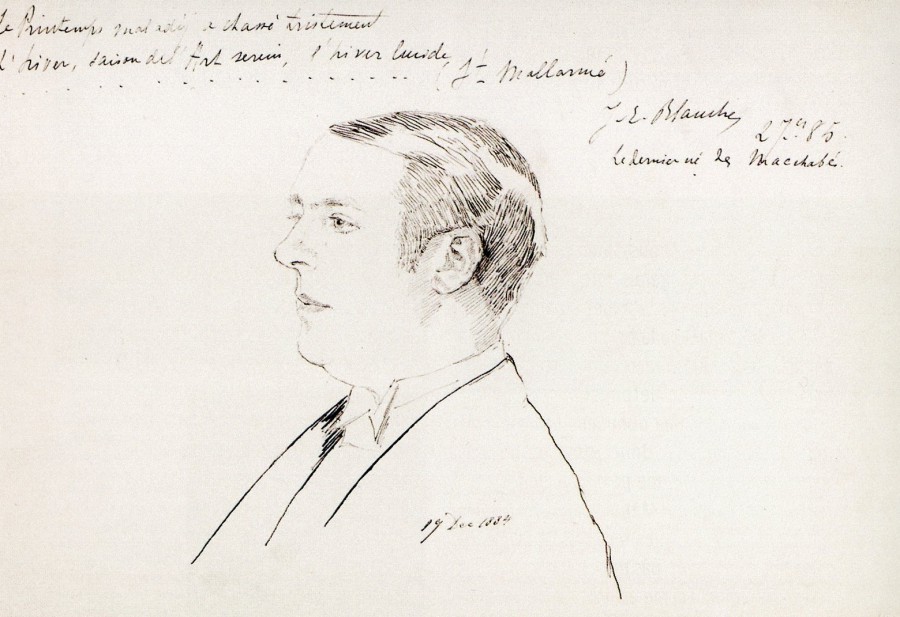 Le Printemps maladif a chassé tristement
L'hiver, saison de l'Art serein, l'hiver lucide
. . . . . . . . . . . . . . . (St Mallarmé)
J. E. Blanche
27 85.
Le dernier né des Macchabé.
19 Dec 1884